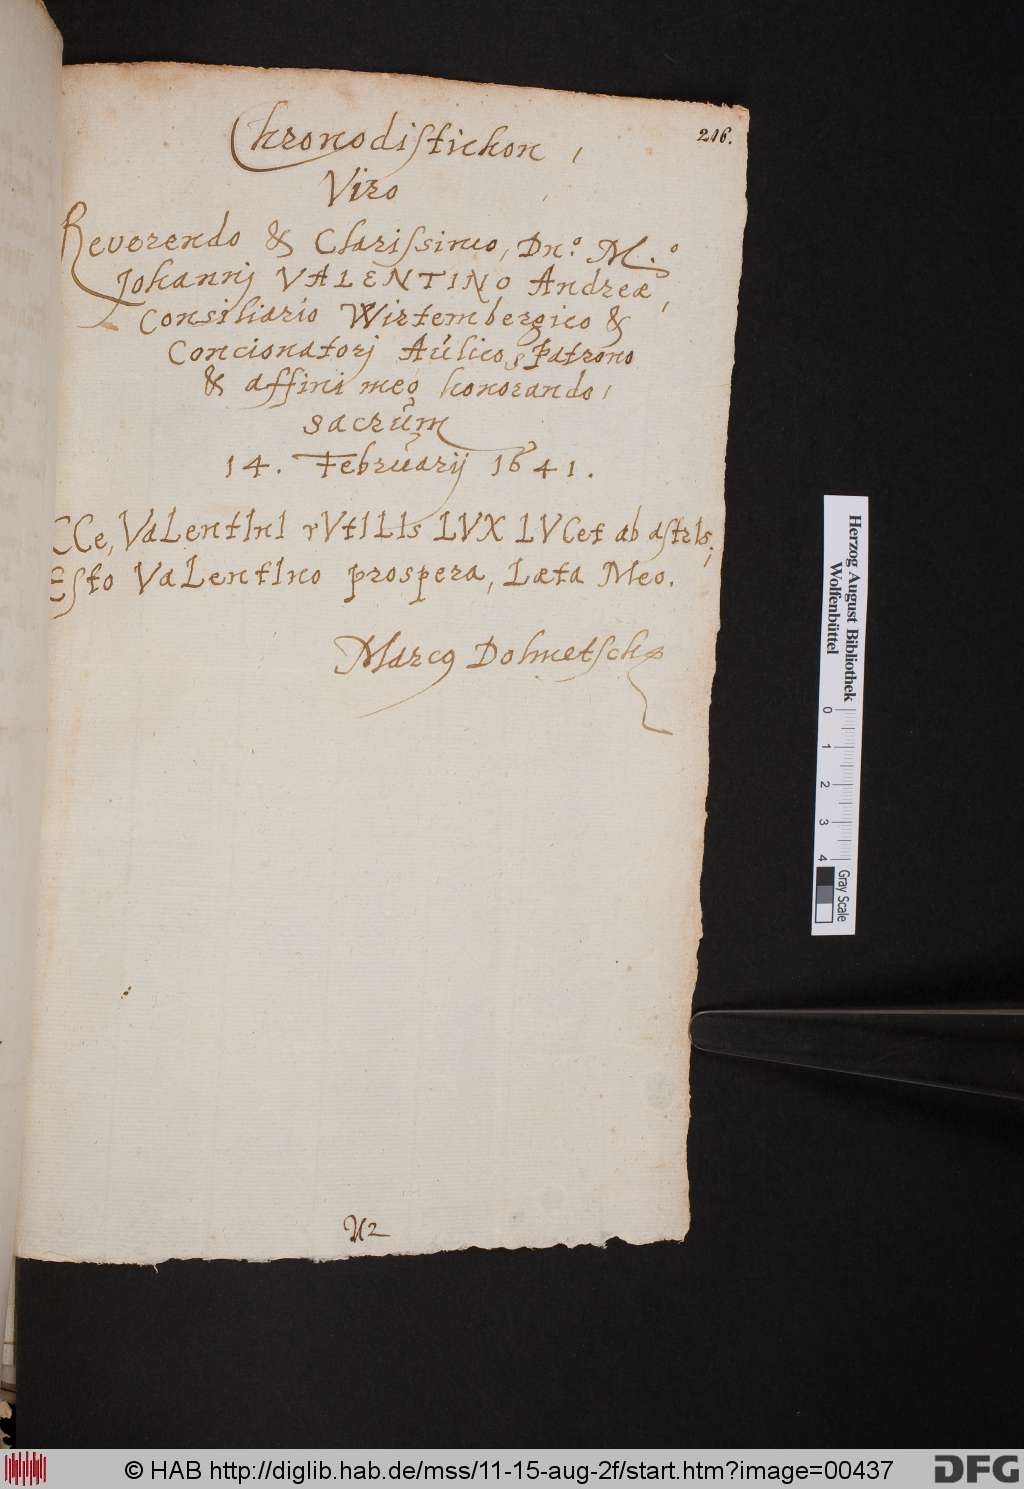 216.
Chronodistichon,
Viro
Reverendo & Clarissimo, Dn.º M.º
Johannj VALENTINO Andreæ,
Consiliario Wirtembergico &
Concionatorj Aulico, Patrono
& affini meo honorando,
sacrum
14. Februarij 1641.
CCe, VaLentInI rVtILIs LVX LVCet ab astrIs;
Esto VaLentIno prospera, Læta Meo.
Marcq Dolmetsch
N2
Herzog August Bibliothek
Wolfenbüttel
0 1 2 3 4
Gray Scale
© HAB http://diglib.hab.de/mss/11-15-aug-2f/start.htm?image=00437
DFG